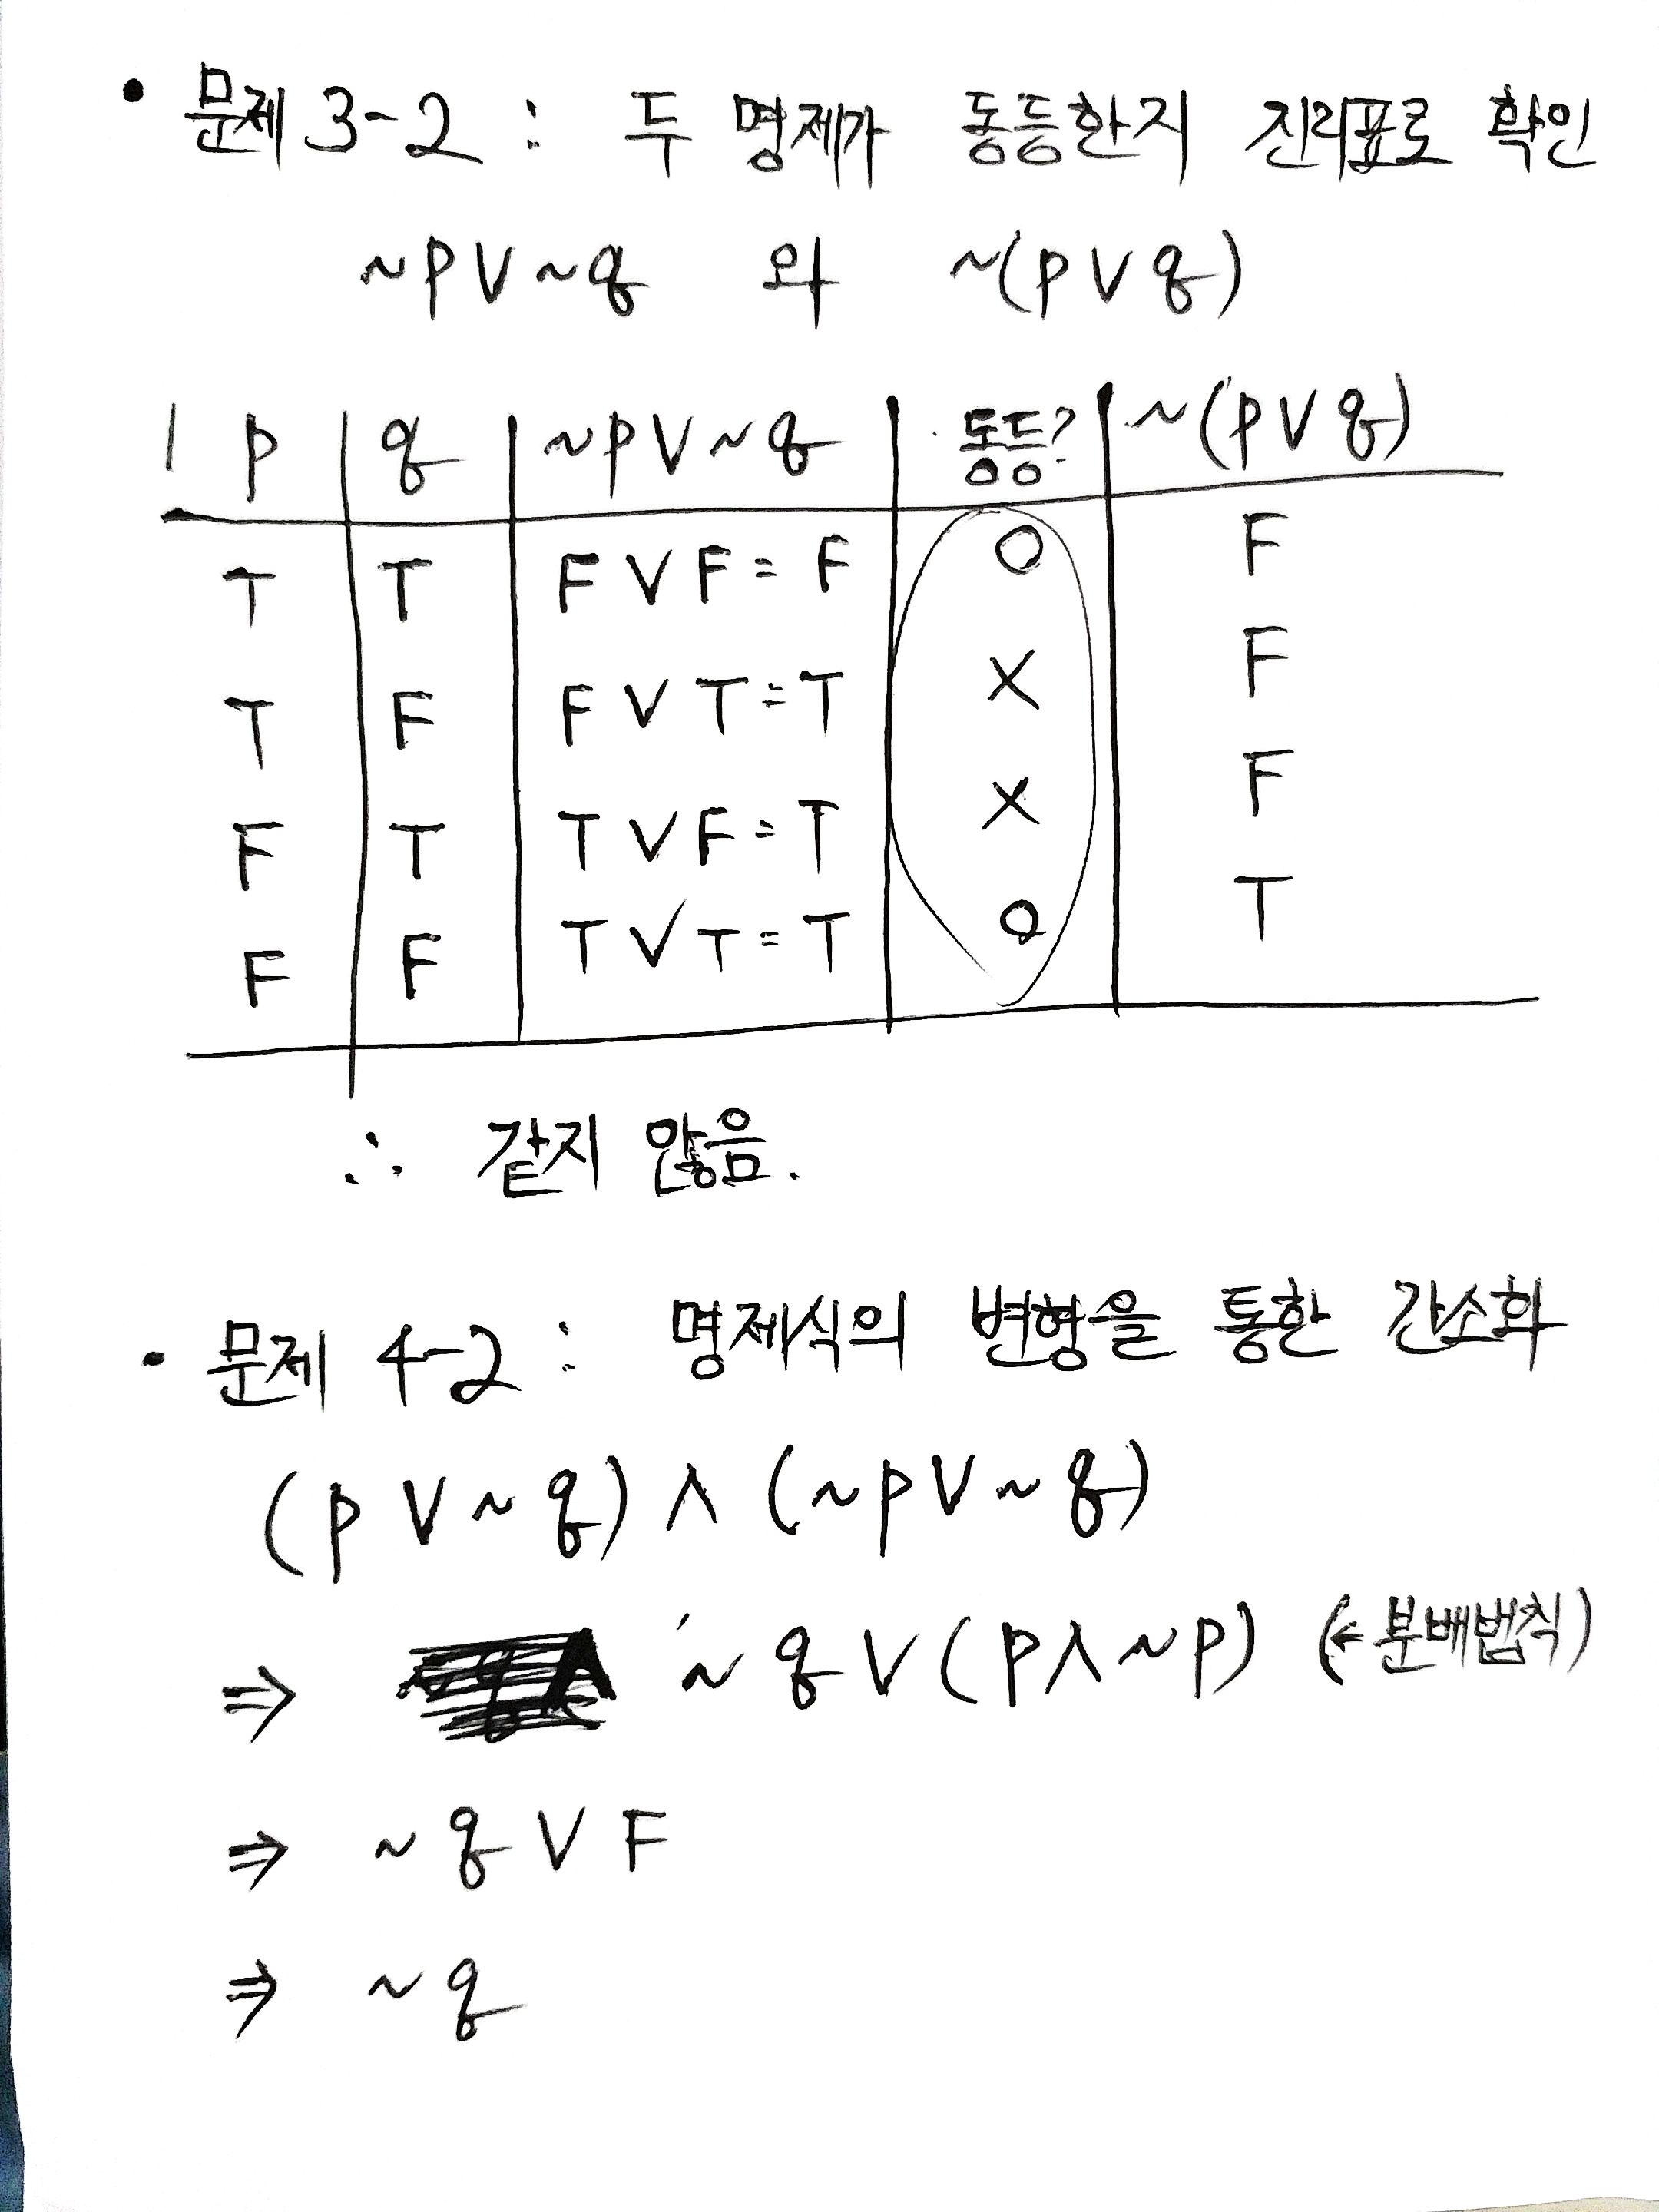 • 문제 3-2 : 두 명제가 동등한지 진리표로 확인
~p∨~q 와 ~(p∨q)
p | q | ~p∨~q | 동등? | ~(p∨q)
T | T | F∨F=F | O | F
T | F | F∨T=T | X | F
F | T | T∨F=T | X | F
F | F | T∨T=T | O | T
∴ 같지 않음.
• 문제 4-2 : 명제식의 변형을 통한 간소화
(p∨~q)∧(~p∨~q)
⇒ ~q∨(p∧~p) (← 분배법칙)
⇒ ~q∨F
⇒ ~q